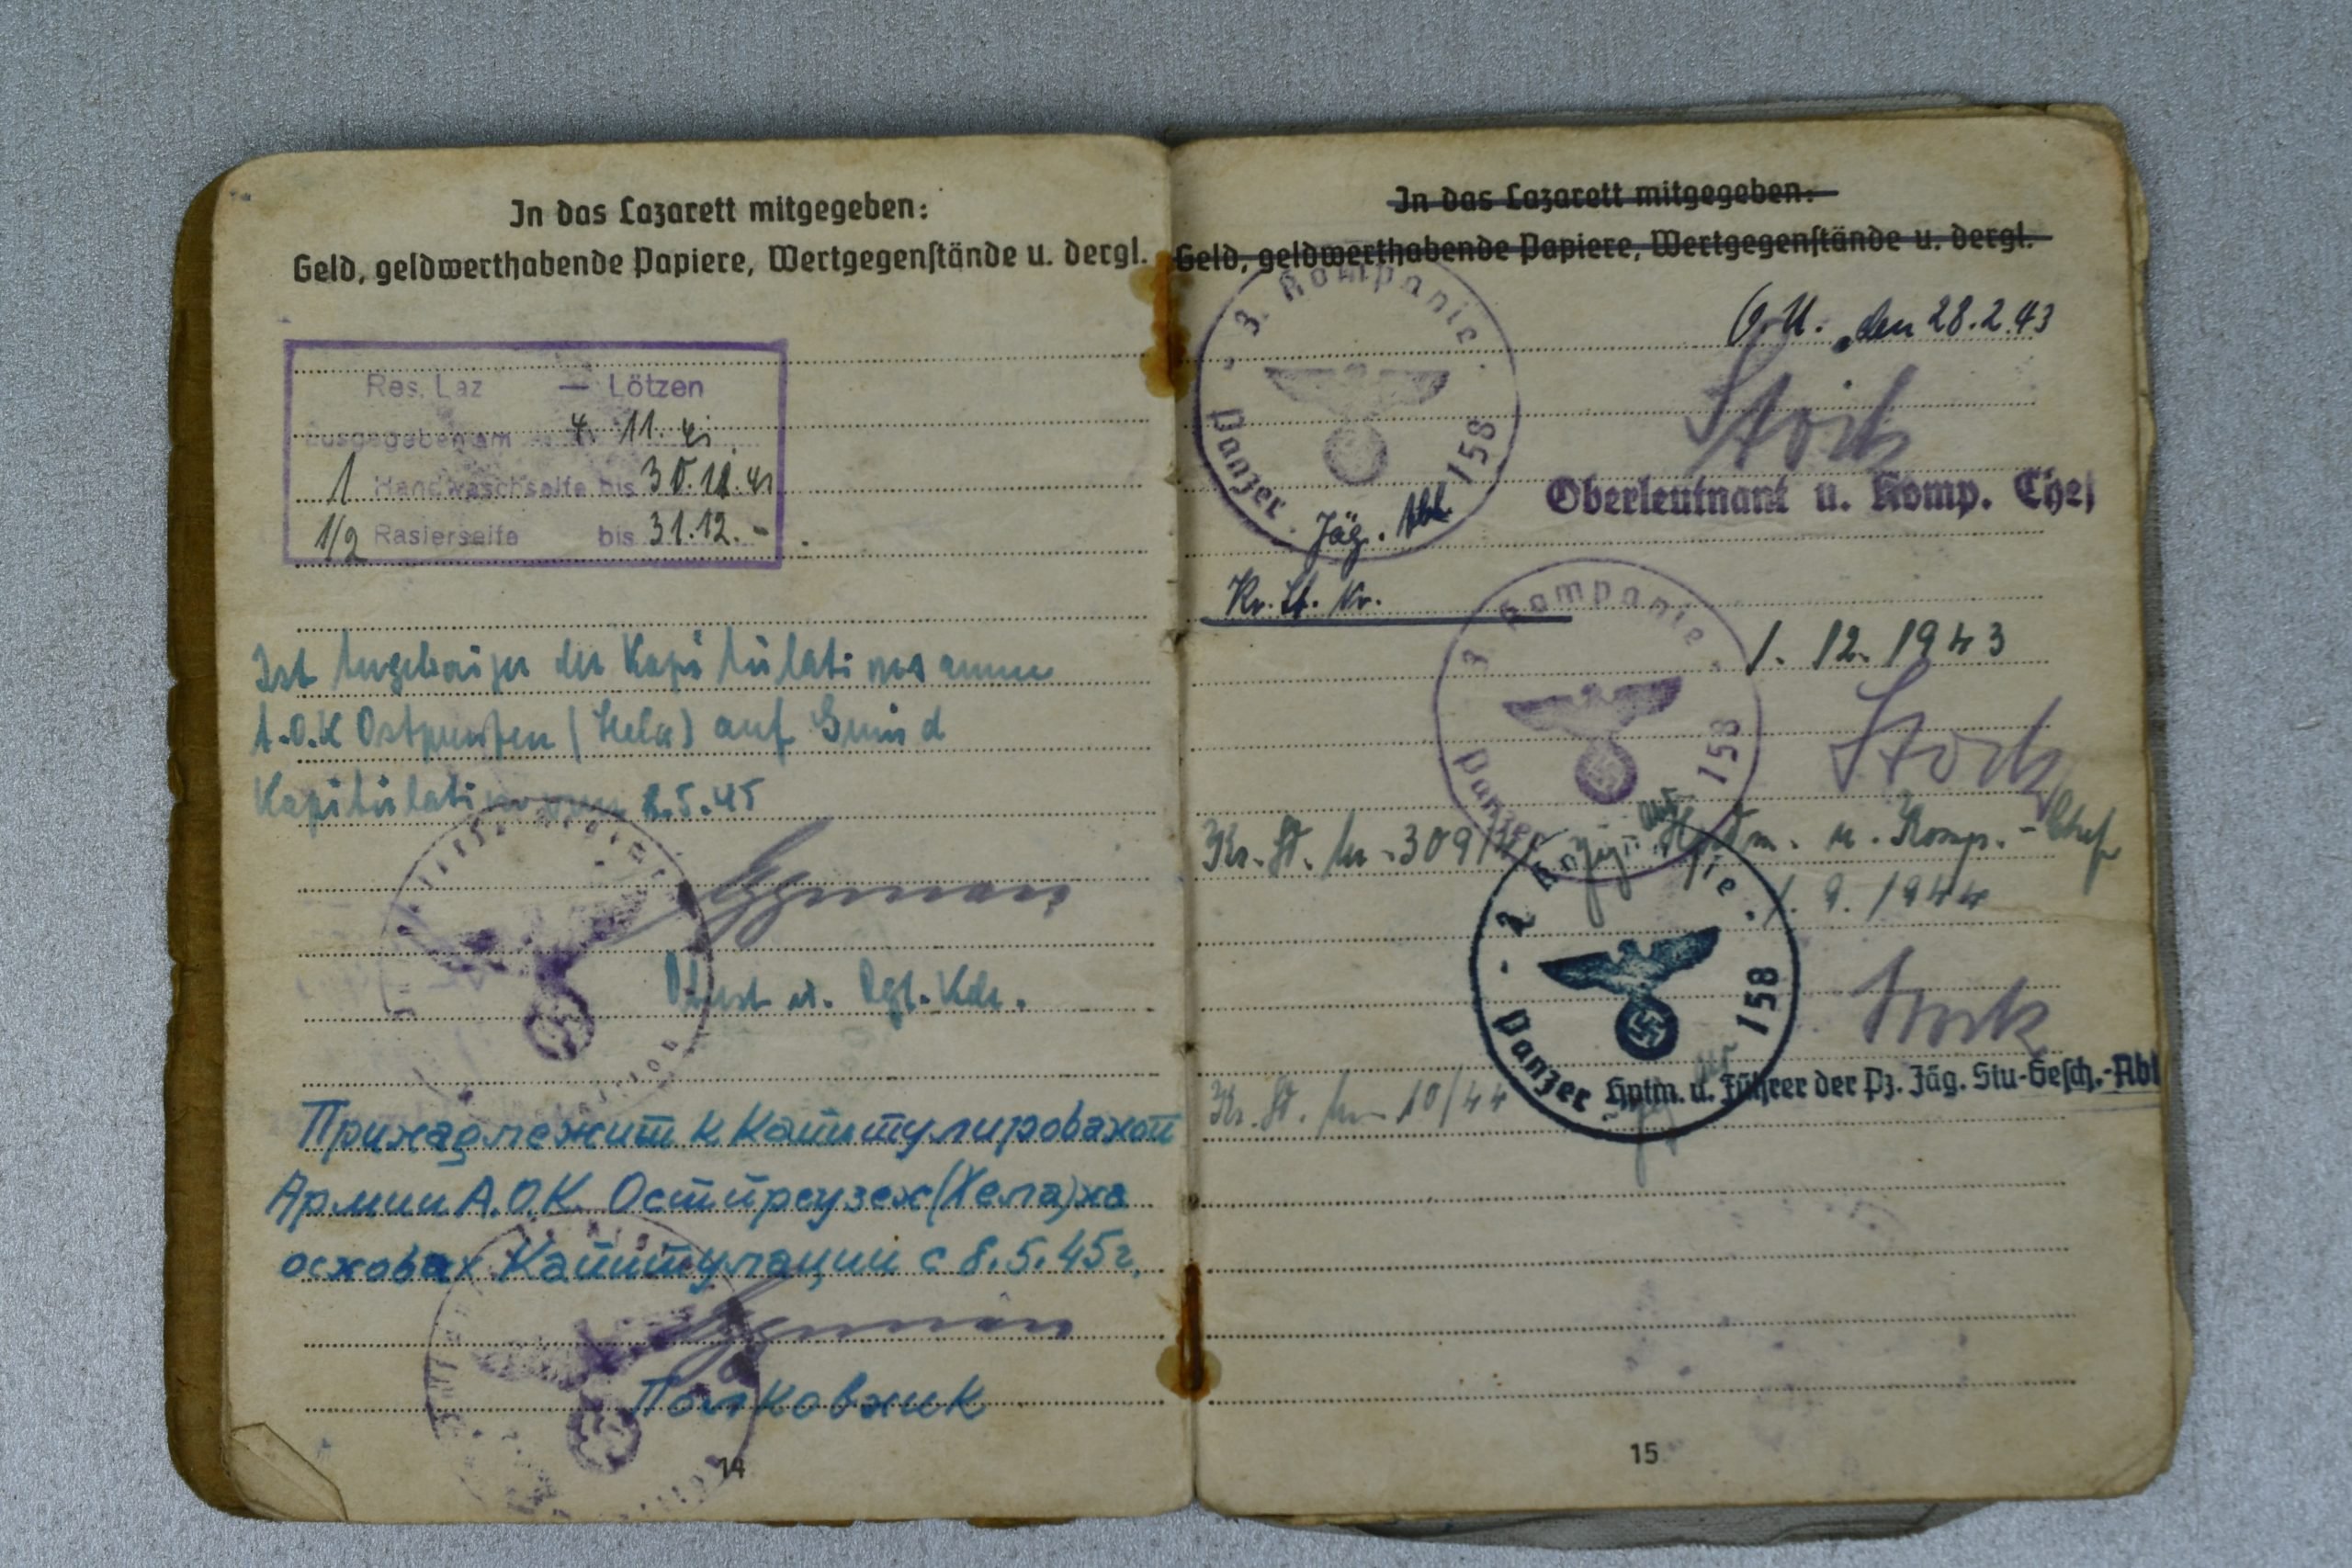 In das Lazarett mitgegeben:
Geld, geldwerthabende Papiere, Wertgegenstände u. dergl.
Res. Laz — Lötzen
Ausgegeben am 4. 11. 41
1 Handwaschseife bis 30.11.41
1/2 Rasierseife bis 31.12. -
Ist Angehöriger der Kapitulationsarmee
A.O.K Ostpreußen (Hela) auf Grund
Kapitulation vom 8.5.45
Oberst u. Rgt. Kdr.
Принадлежит к Капитулированой
Армии А.О.К. Остпреузен (Хела) на
основах Капитулации с 8.5.45г.
Полковник
14
In das Lazarett mitgegeben:
Geld, geldwerthabende Papiere, Wertgegenstände u. dergl.
3. Kompanie
Panzer Jäg. Abt. 158
O.U. den 28.2.43
Stock
Oberleutnant u. Komp. Chef
Kr. St. Nr.
3 Kompanie
Panzer 158
1. 12. 1943
Stock
Kr. St. Nr. 309/
Hptm. u. Komp.-Chef
Panzer 158
1. 9. 1944
Stock
Hptm. u. Führer der Pz. Jäg. Stu-Gesch.-Abt
Kr. St. Nr. 10/44
15